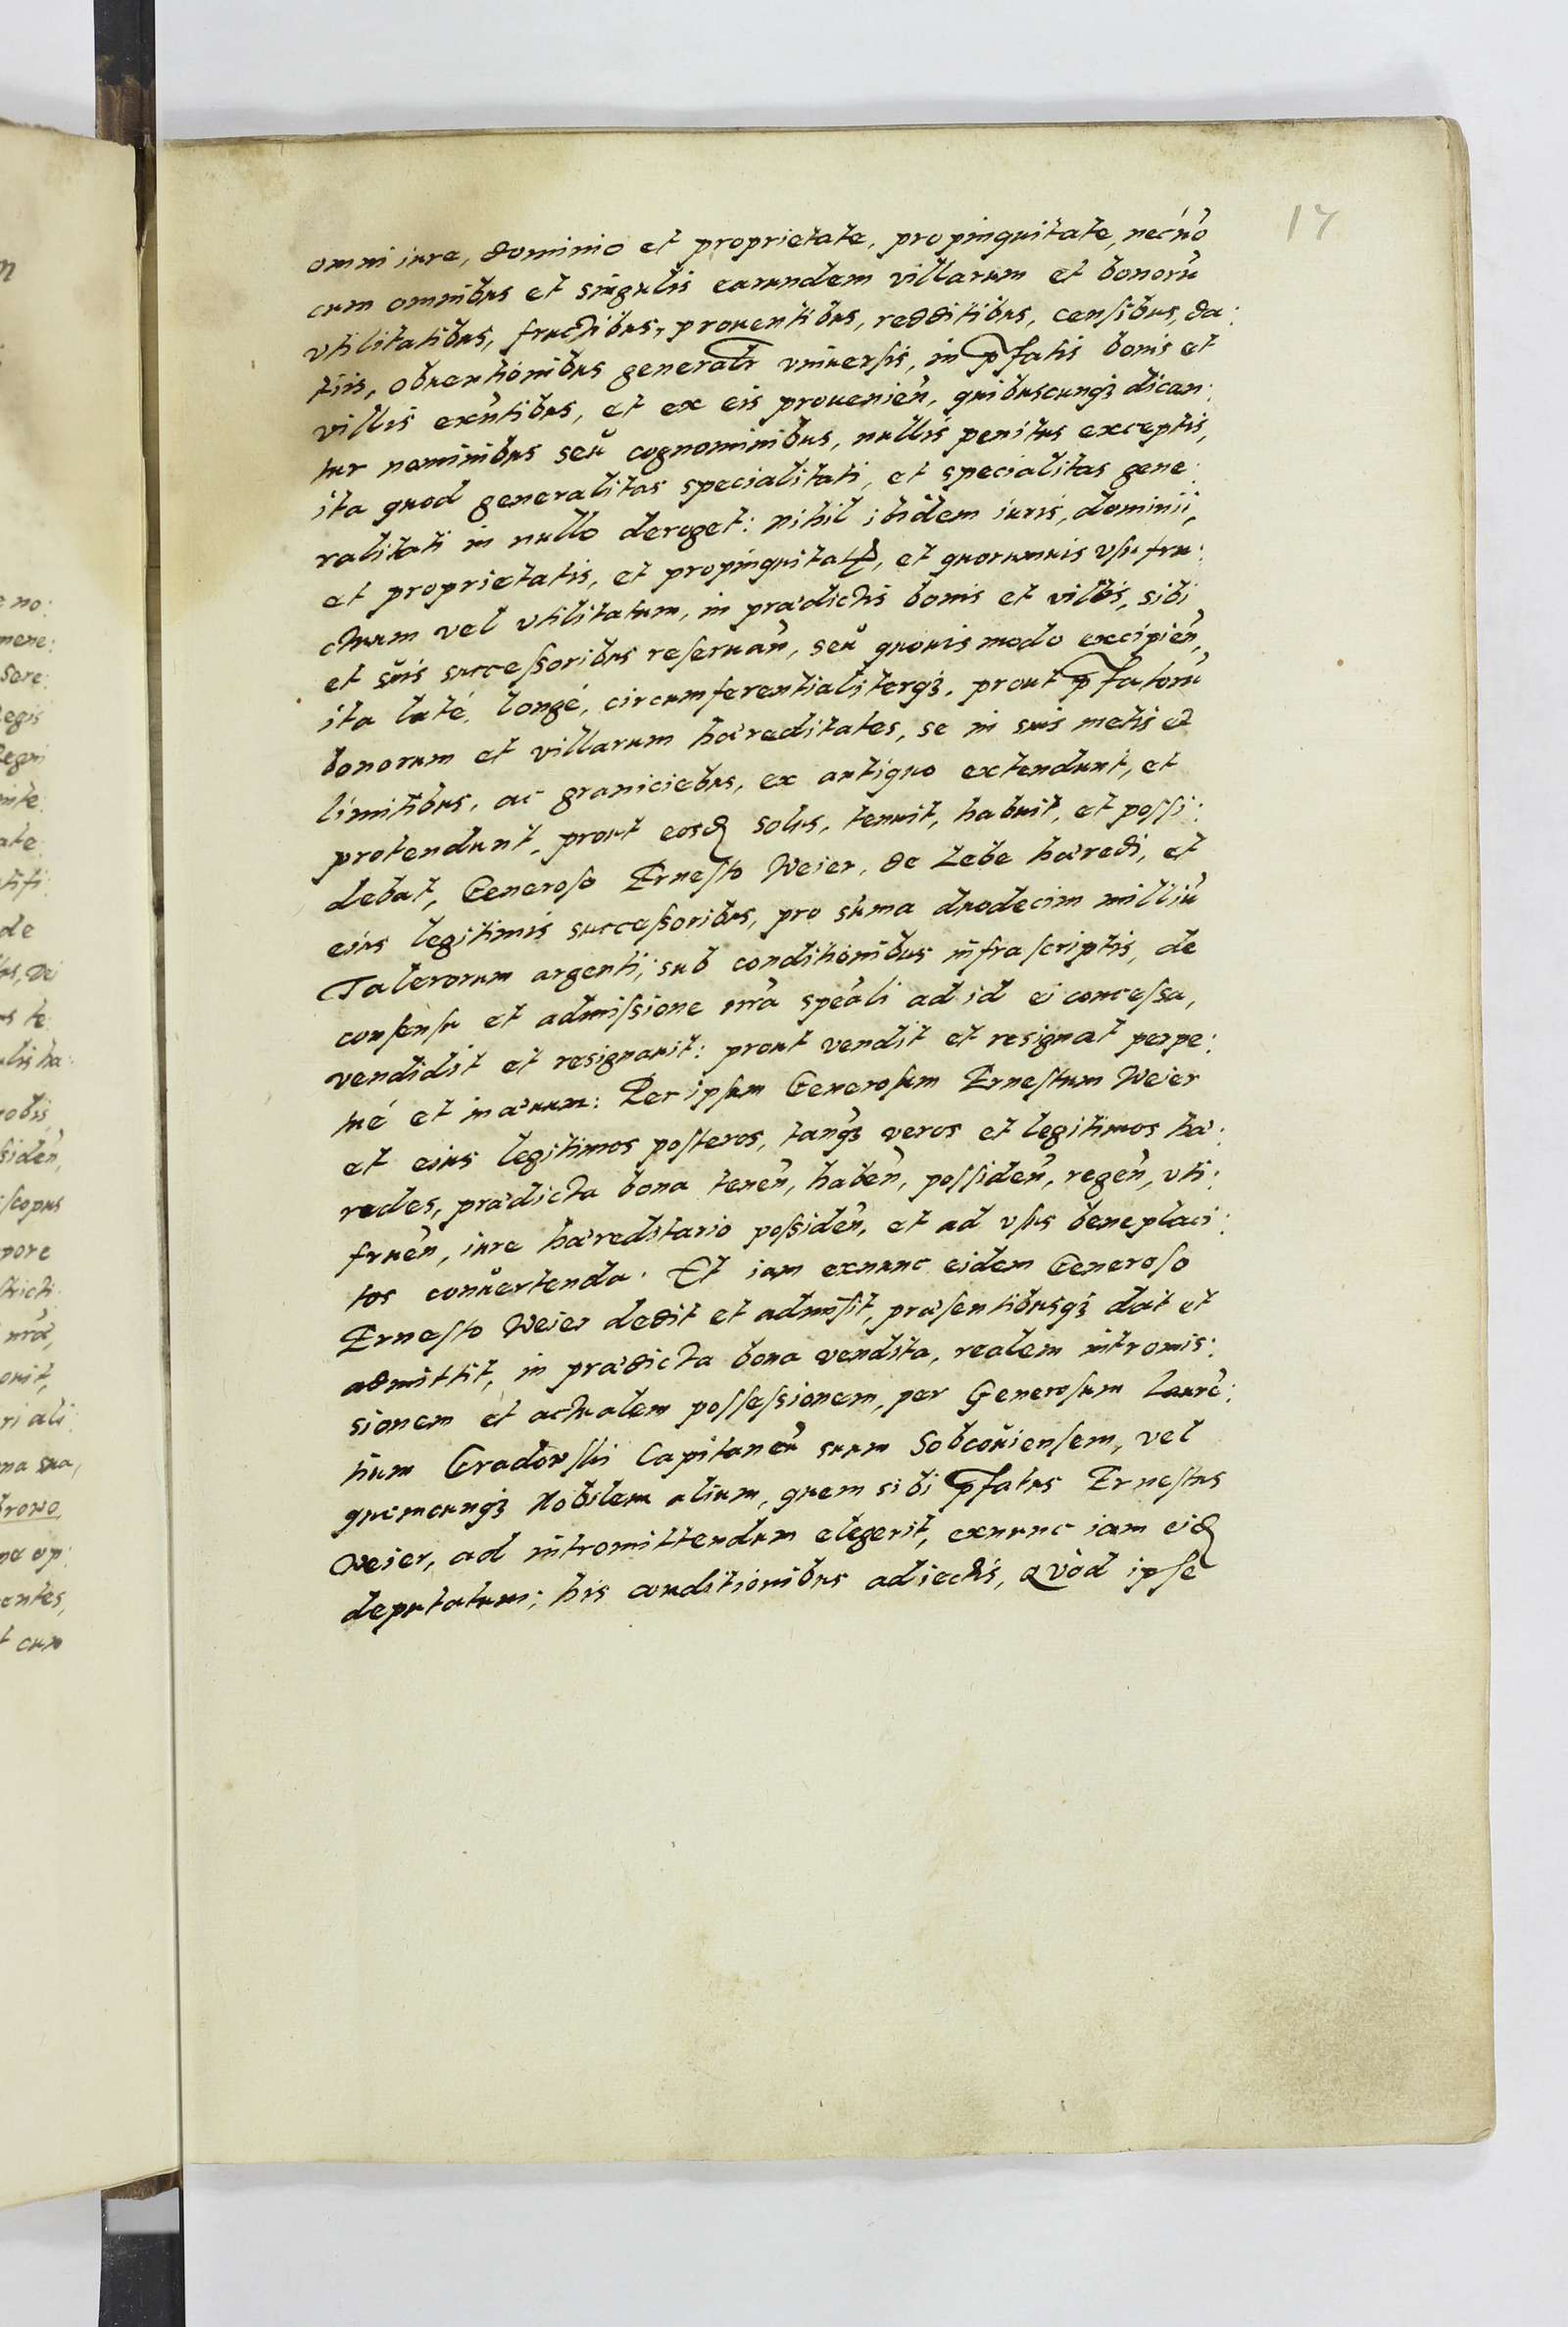 17
omni iure, dominio et proprietate, propinquitate, necnō
cum omnibus et singulis earundem villarum et bonorū
vtilitatibus, fructibus, prouentibus, redditibus, censibus, da:
tiis, obuentionibus generalr vniuersis, in p̄fatis bonis et
villis exn̄tibus, et ex eis prouenien̄, quibuscunqꝫ dican:
tur nominibus seu cognominibus, nullis penitus exceptis,
ita quod generalitas specialitati, et specialitas gene:
ralitati in nullo deroget: nihil ibidem iuris, dominii,
et proprietatis, et propinquitatꝭ, et quorumuis vsufru:
ctuum vel vtilitatum, in prædictis bonis et villis, sibi
et suis successoribus reseruan̄, seu quouis modo excipien̄,
ita laté, longé, circumferentialiterqꝫ, prout p̄fatorū
bonorum et villarum hæreditates, se in suis metis et
limitibus, ac graniciebus, ex antiquo extendunt, et
protendunt, prout eosd solus, tenuit, habuit, et possi:
debat, Generoso Ernesto Weier, de Lebe hæredi, et
eius legitimis successoribus, pro suma duodecim milliū
Talerorum argenti, sub conditionibus infrascriptis, de
consensu et admissione nr̄a spēali ad id ei concessa,
vendidit et resignauit: prout vendit et resignat perpe:
tué et in æuum: Per ipsum Generosum Ernestum Weier
et eius legitimos posteros, tanqꝫ veros et legitimos hæ:
redes, prædicta bona tenen̄, haben̄, possiden̄, regen̄, vti:
fruen̄, iure hæreditario possiden̄, et ad vsus beneplaci:
tos conuertenda. Et iam exnunc eidem Generoso
Ernesto Weier dedit et admisit, præsentibusqꝫ dat et
admittit, in prædicta bona vendita, realem intromis:
sionem et actualem possessionem, per Generosum Laurē:
tium Gradowski Capitaneū suum Sobcouiensem, vel
quemcunqꝫ Nobilem alium, quem sibi p̄fatus Ernestus
Weier, ad intromittendum elegerit, exnunc iam eid
deputatum; his conditionibus adiectis, Quòd ipse